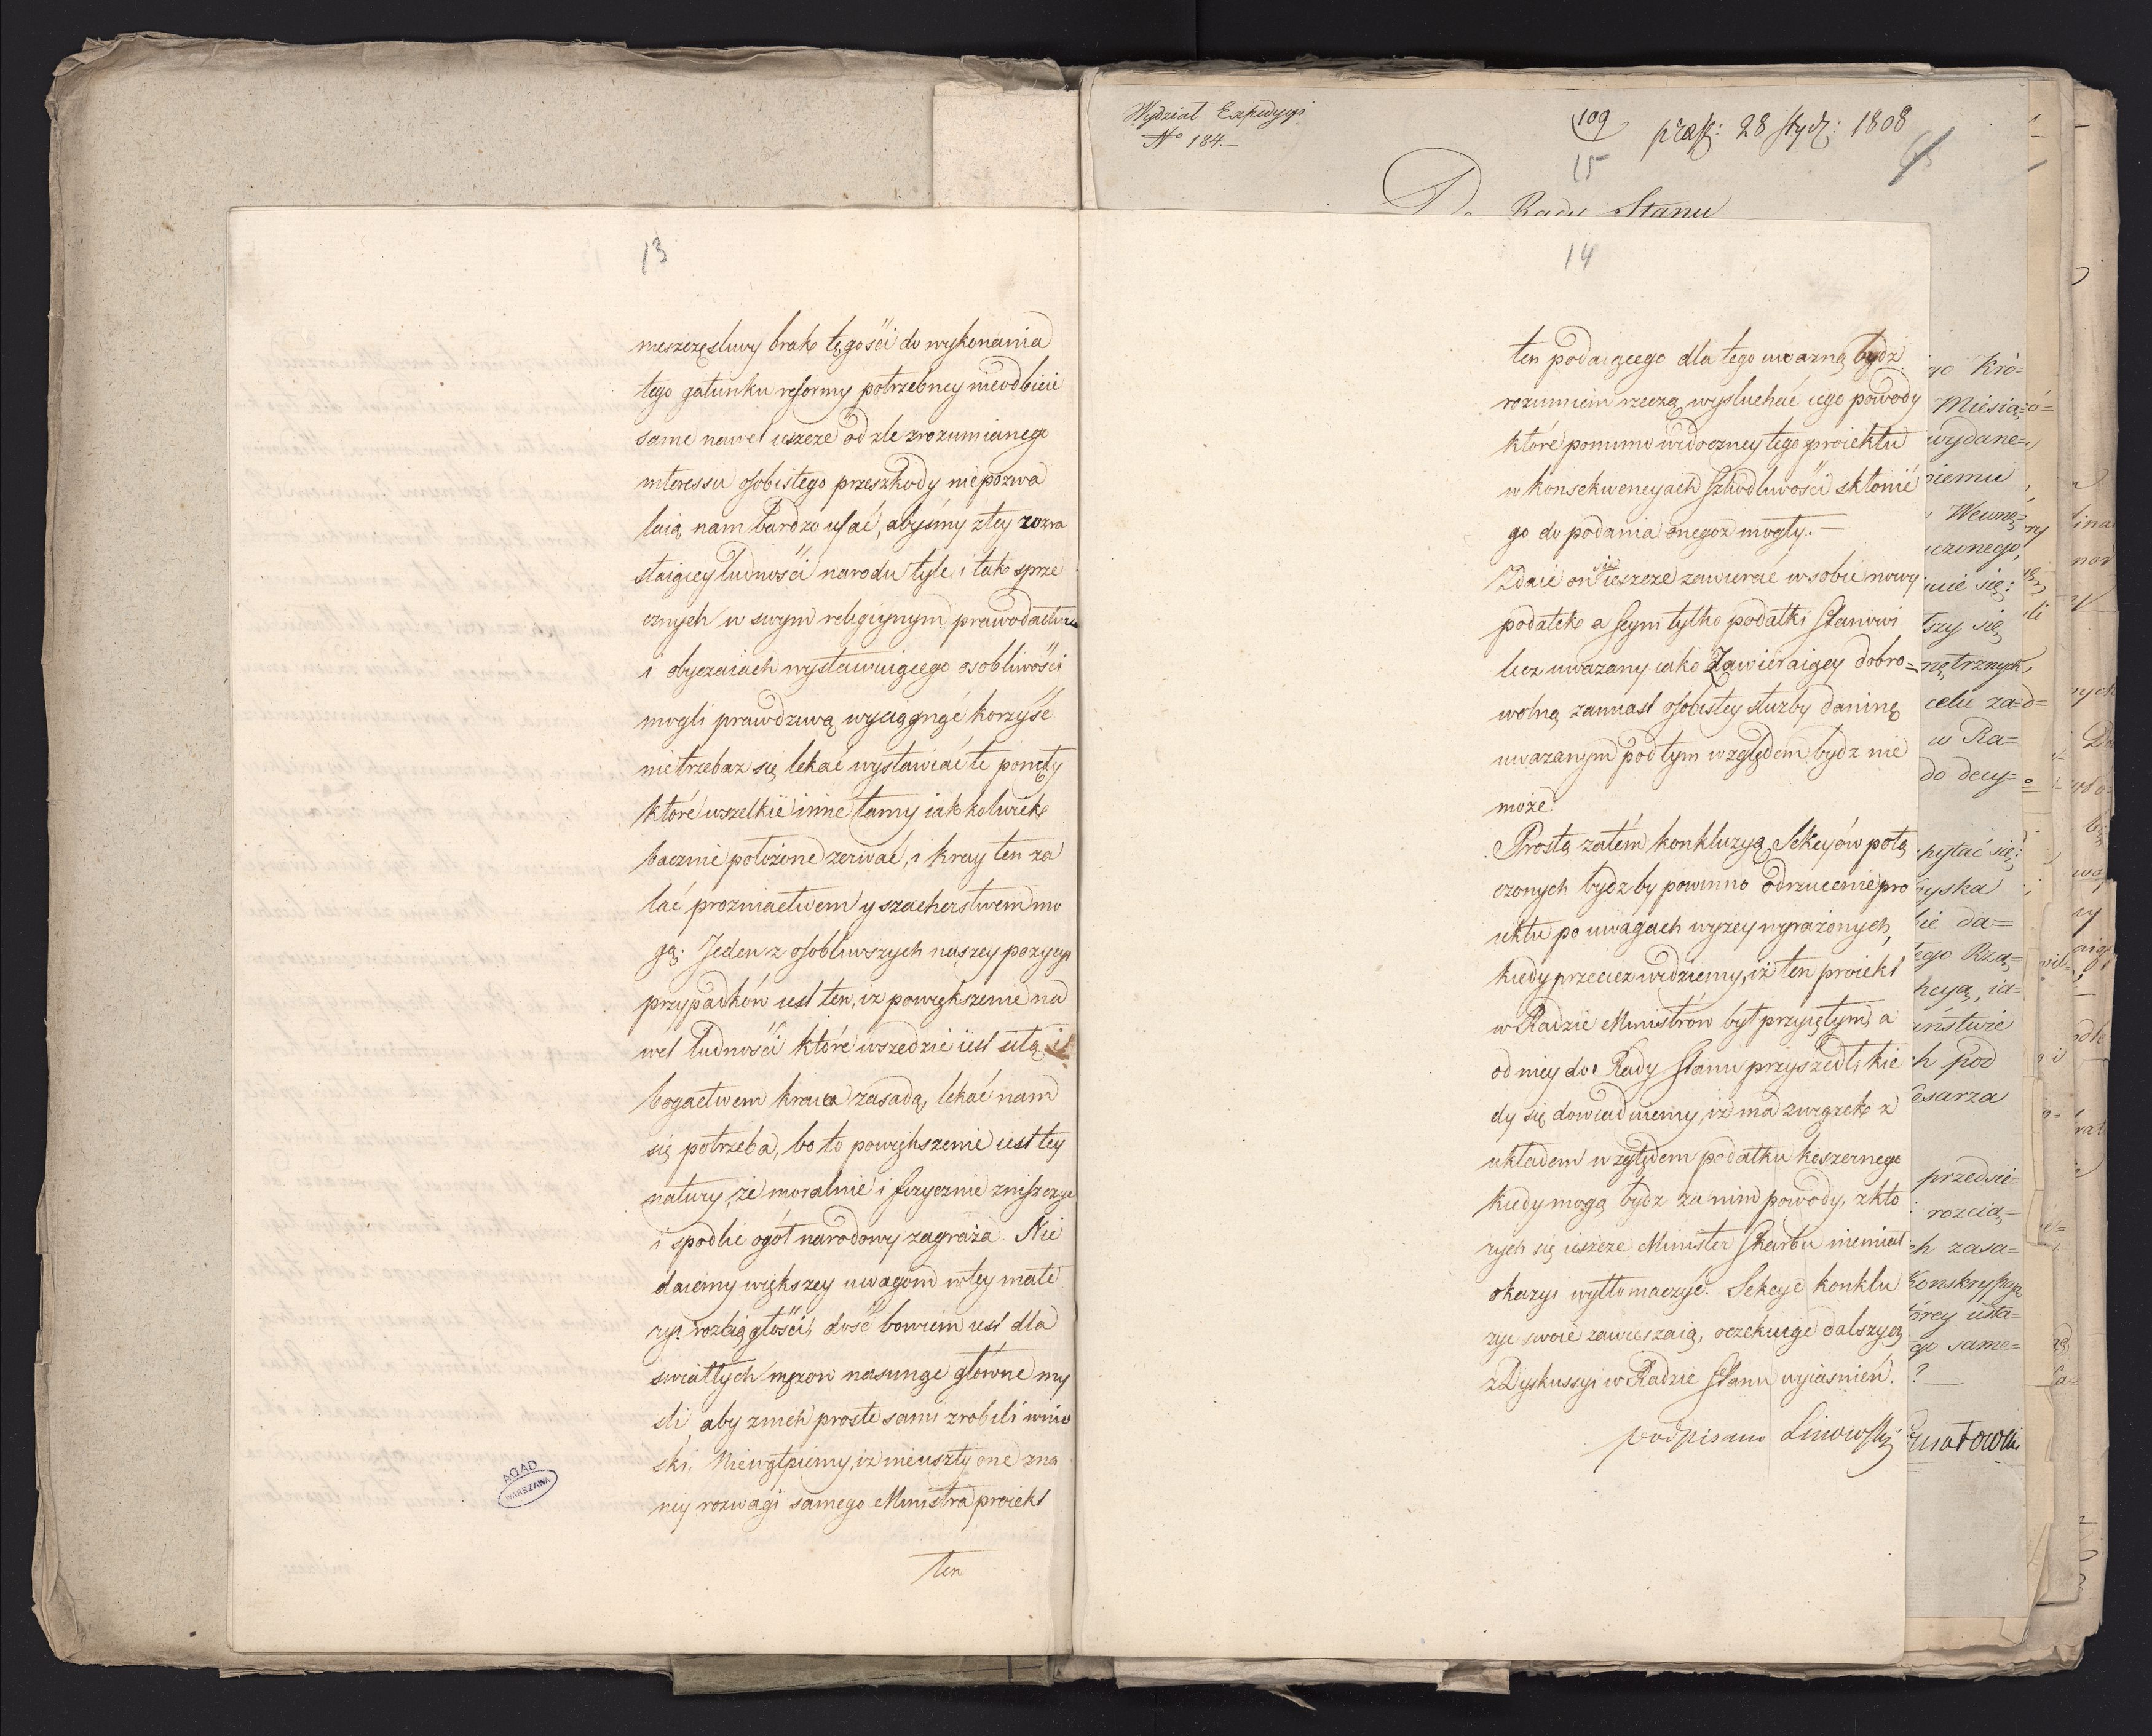 13
nieszczęsliwy brak tęgości do wykonania
tego gatunku reformy potrzebney nieodbicie
same nawet ieszcze od zle zrozumianego
interessu osobistego przeszkody niepozwa
laią nam bardzo ufać, abyśmy z tey rozra
staiącey ludności narodu tyle i tak sprze
cznych w swym religiynym prawodactwie
i obyczaiach wystawuiącego osobliwości
mogli prawdziwą wyciągnąć korzyść
nietrzebaż się lekać wystawiać te ponęty
które wszelkie inne tamy iakkolwiek
bacznie położone zerwać, i kray ten za
lać prozniactwem y szacherstwem mo
gą. Jeden z osobliwszych naszey pozycyi
przypadków iest ten, iz powiększenie na
wet ludności które wszedzie iest siłą i
bogactwem kraiu zasadą, lekać nam
się potrzeba, bo to powiększenie iest tey
natury, że moralnie i fizycznie zniszczyć
i spodlić ogół narodowy zagraża. Nie
daiemy większey uwagom w tey mate
ryi rozciągłości, dość bowiem iest dla
swiatłych mężow nasunąć główne my
sli, aby z nich proste sami zrobili wnio
ski. Niewątpiemy, iz nieuszły one zna
ney rozwagi samego Ministra proiekt
ten
AGAD
WARSZAWA
Wydział Expedycyi
No 184.
109
15
præst: 28 stycz: 1808
Do Rady Stanu
14
ten podaiącego dla tego uważną bydz
rozumiem rzeczą wysłuchać iego powody
które pomimo widoczney tego proiektu
w konsekwencyach szkodliwości skłonić
go do podania onegoz mogły.—
Zdaie on się ieszcze zawierać w sobie nowy
podatek a seym tylko podatki stanowi
lecz uważany iako zawieraiący dobro=
wolną zamiast osobistey służby daninę
uważanym pod tym względem bydz nie
może.
Prostą zatém konkluzyą Sekcyów połą
czonych bydz by powinno odrzucenie pro
iektu po uwagach wyżey wyrażonych,
kiedy przeciez widziemy, iż ten proiekt
w Radzie Ministrów był przyiętym, a
od niey do Rady Stanu przyszedł, kie
dy się dowiaduiemy, iż ma związek z
układem względem podatku koszernego
kiedy mogą bydz za nim powody, z któ
rych się ieszcze Minister Skarbu niemiał
okazyi wytłomaczyć. Sekcye konklu
zye swoie zawieszaią, oczekuiąc dalszych
z Dyskussyi w Radzie Stanu wyiasnień.
podpisano Linowski
Kró=
Miesią=
wydane=
niemu
Wewnę=
czonego,
się:
tszy się
nętrznych,
celu za=
w Ra=
do decy=
pytać się:
zyska
da=
tego Rzą=
kcyą, ia=
aństwie
pod
Cesarza
przedsię=
rozcią=
zasa=
Konskrypcyi
którey usta=
same=
?